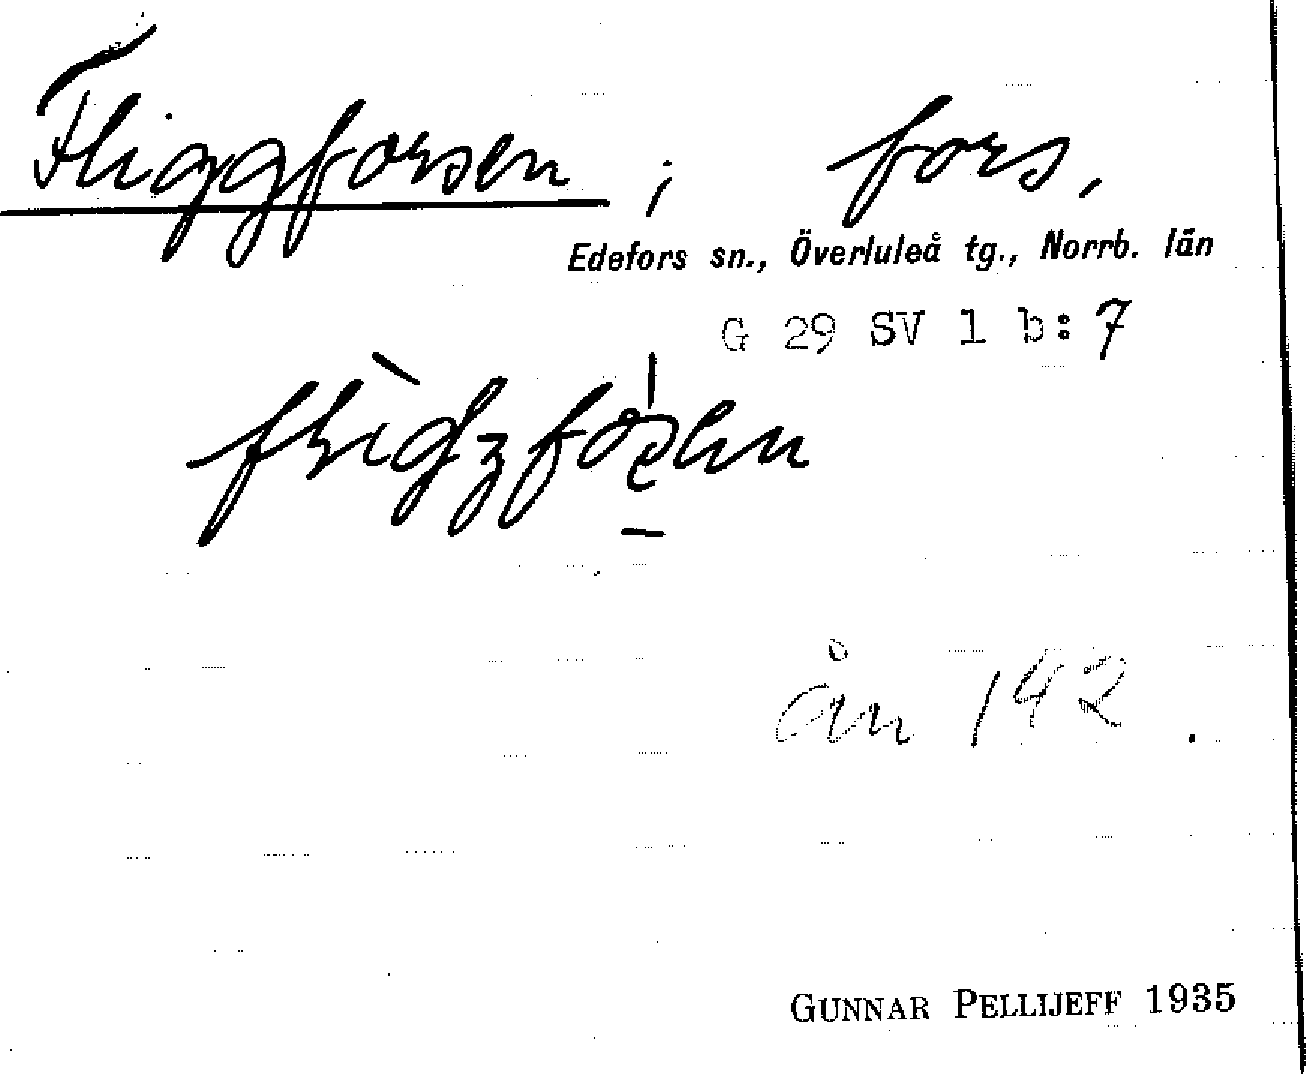 Fliggforsen, fors,
Edefors sn., Överluleå tg., Norrb. län
G 29 SV 1 b: 7
ån 142.
GUNNAR PELLIJEFF 1935